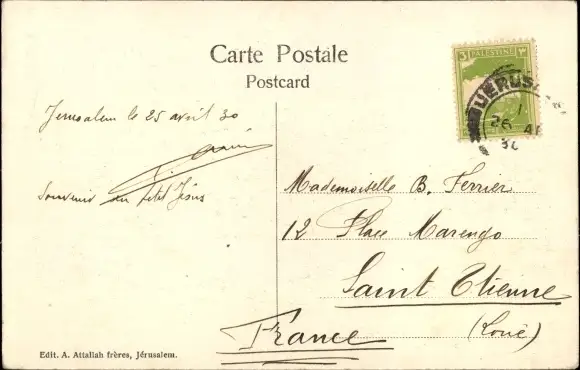 Carte Postale
Postcard
3 PALESTINE ٣
JERUS
26 AP
30
Jerusalem le 25 avril 30
Souvenir au petit Jésus
Mademoiselle B. Ferrier
12 Place Marengo
Saint Etienne
(Loire)
France
Edit. A. Attallah frères, Jérusalem.